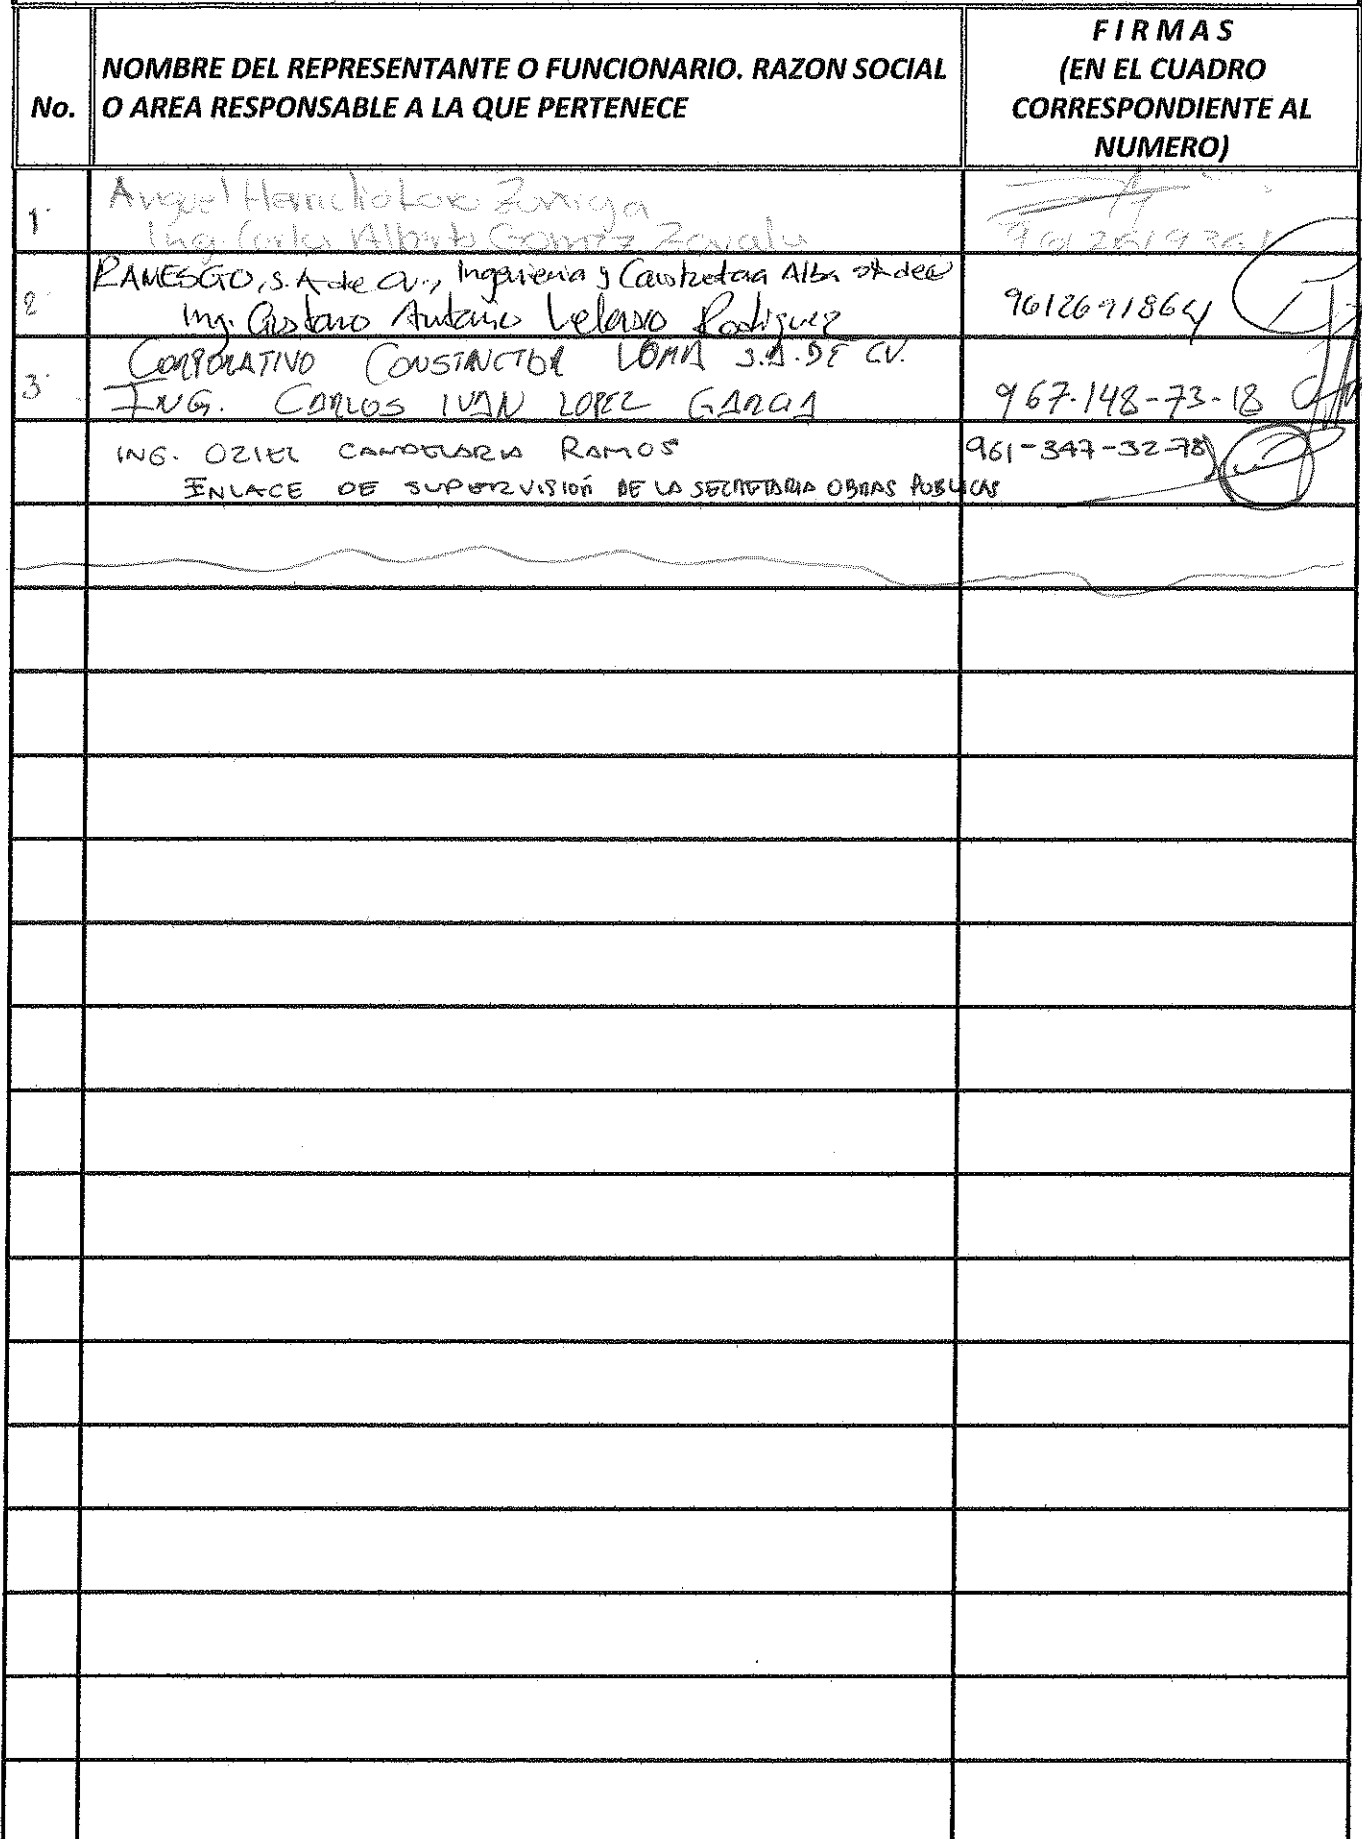 No.
NOMBRE DEL REPRESENTANTE O FUNCIONARIO. RAZON SOCIAL
O AREA RESPONSABLE A LA QUE PERTENECE
F I R M A S
(EN EL CUADRO
CORRESPONDIENTE AL
NUMERO)
1.
Angel Zuniga
Ing. Carlos Alberto Gomez Zavala
2.
RAMESGO, S.A de CV., Ingenieria y Alba
Ing. Gustavo Antonio Velasco Rodriguez
9612691864
3.
CORPORATIVO CONSTRUCTOR LOMA S.A. DE CV.
ING. CARLOS IVAN LOPEZ GARCIA
967-148-73-18
ING. OZIEL CANDELARIA RAMOS
961-347-32-78
ENLACE DE SUPERVISIÓN DE LA SECRETARIA OBRAS PUBLICAS